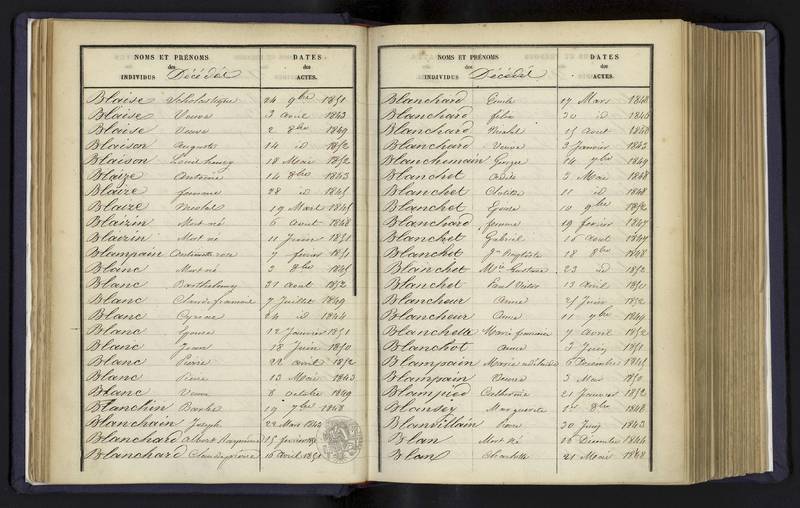 NOMS ET PRÉNOMS
des
INDIVIDUS Décédés
DATES
des
ACTES.
Blaise Scholastique 24 9bre 1851
Blaise Veuve 3 Avril 1843
Blaise Veuve 2 8bre 1849
Blaison Auguste 14 id 1852
Blaison Louis henry 18 Mai 1852
Blaize Antoine 14 8bre 1843
Blaize femme 28 id 1845
Blaize Nicolas 19 Mars 1845
Blaizin Mort né 6 Aout 1848
Blaizin Mort né 11 1851
Blampain Antoinette rose 7 fevrier 1851
Blanc Mort né 2 8bre 1845
Blanc Barthelemy 21 Aout 1852
Blanc Claude francois 7 Juillet 1849
Blanc Cyriac 24 id 1844
Blanc Epouse 12 Janvier 1851
Blanc Jean 18 Juin 1850
Blanc Pierre 22 avril 1852
Blanc Pierre 13 Mai 1843
Blanc Veuve 8 octobre 1849
Blanchin Barbe 19 7bre 1848
Blanchain Joseph 22 Mars 1842
Blanchard Albert 15 fevrier
Blanchard Claude pierre 16 Avril 1851
NOMS ET PRÉNOMS
des
INDIVIDUS Décédés
DATES
des
ACTES.
Blanchard Emile 17 Mars 1848
Blanchard felix 20 id 1846
Blanchard Nicolas 15 Aout
Blanchard Veuve 3 Janvier 1843
Blanchemain George 14 7bre 1849
Blanchet 3 Mai 1848
Blanchet 11 id 1848
Blanchet Epouse 10 9bre 1852
Blanchard femme 19 fevrier 1847
Blanchet Gabriel 16 Aout 1847
Blanchet Jn Baptiste 18 8bre 1848
Blanchet Gustave 23 id 1852
Blanchet Paul Victor 13 Avril 1851
Blancheur Anne 25 Juin 1852
Blancheur Anne 11 7bre 1849
Blanchette Marie 7 Avril 1852
Blanchot Anne 3 Juin 1851
Blampain Marie adelaide 6 Decembre 1845
Blampain Veuve 3 Mai 1850
Blampied Catherine 21 Janvier 1852
Marguerite 8bre 1848
20 Juin 1843
Blan Mort né 16 Decembre 1844
Blan Charlotte 21 Mai 1848